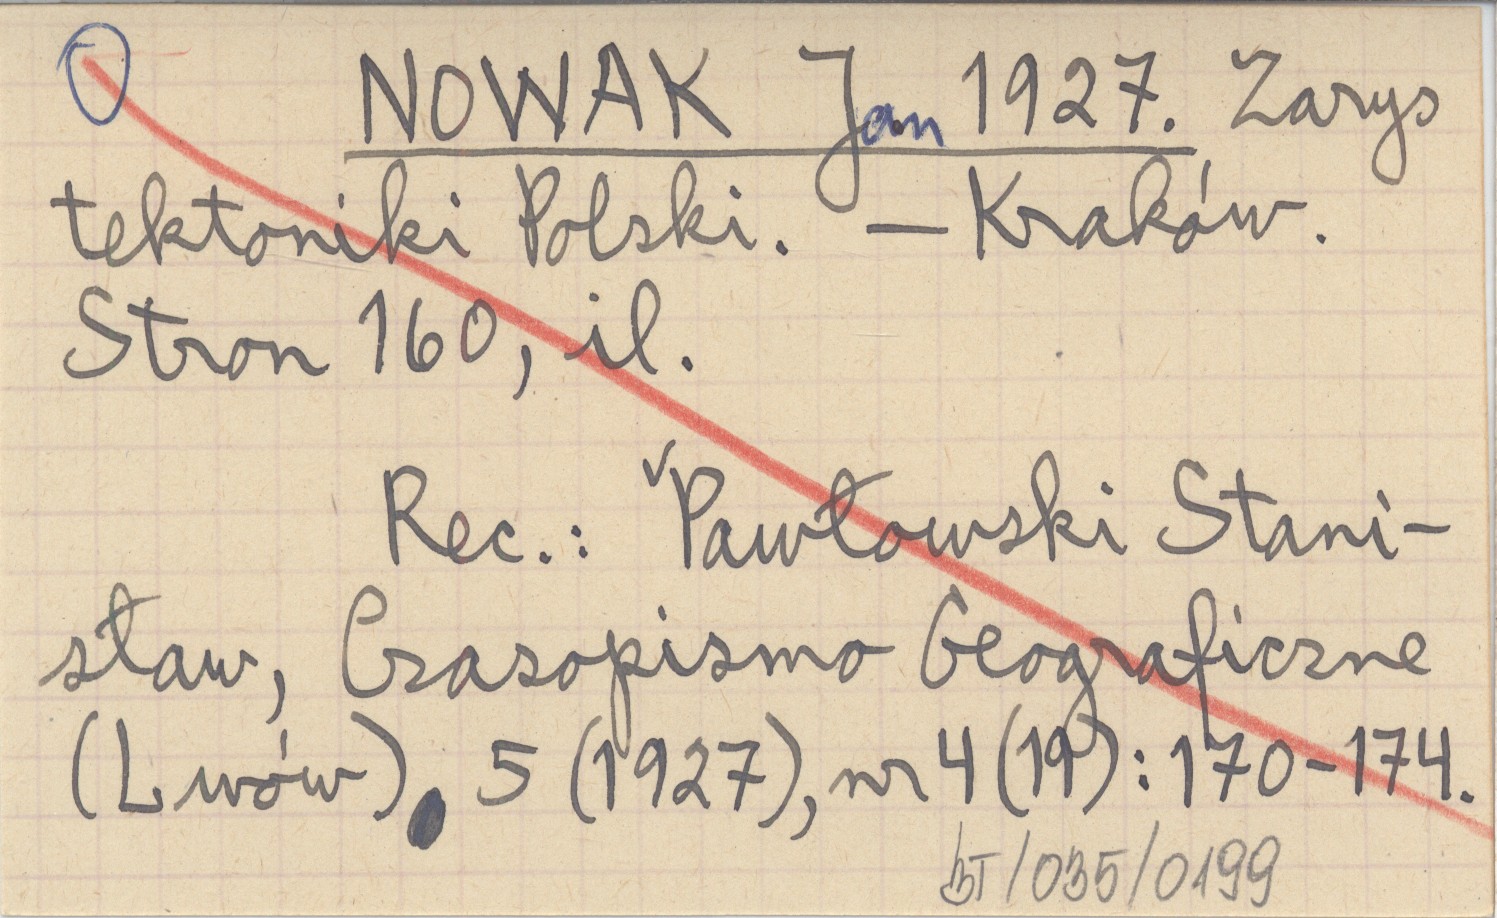 NOWAK Jan 1927. Zarys
tektoniki Polski. — Kraków.
Stron 160, il.
Rec.: Pawłowski Stani-
sław, Czasopismo Geograficzne
(Lwów). 5 (1927), nr 4 (19): 170-174.
BT/035/0199